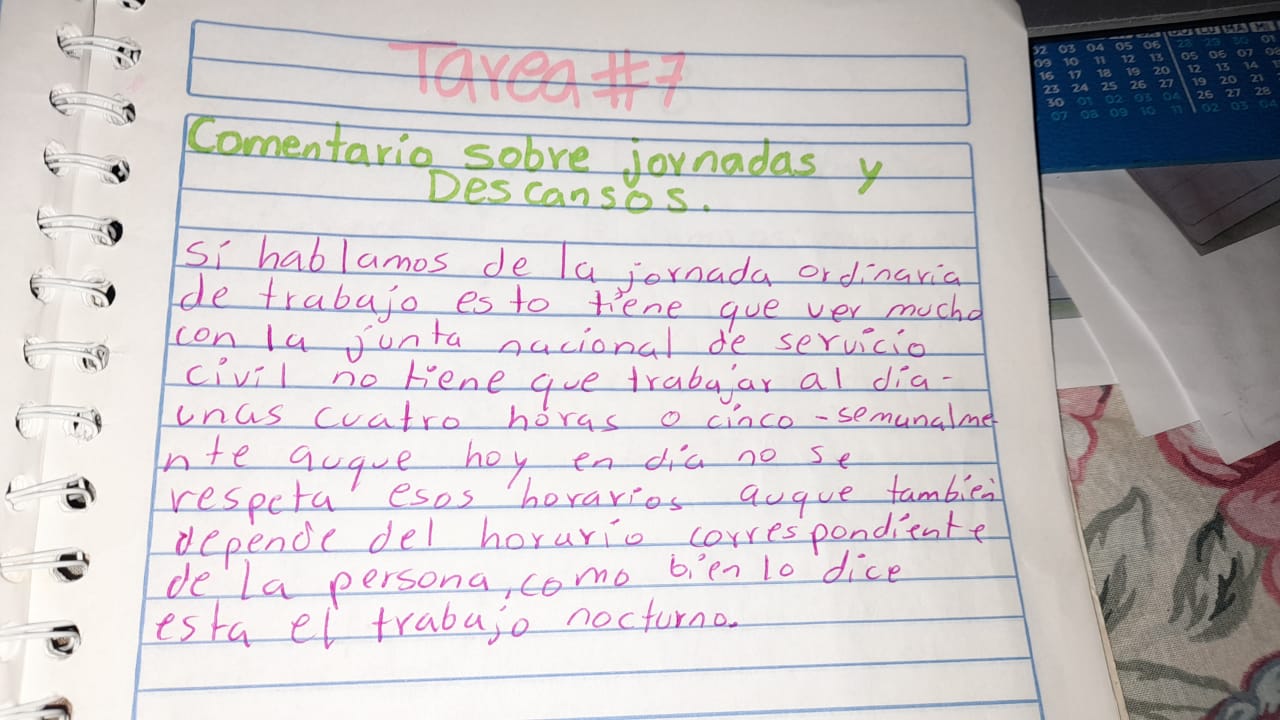 Tarea #7
Comentario sobre jornadas y
Descansos.
Si hablamos de la jornada ordinaria
de trabajo esto tiene que ver mucho
con la junta nacional de servicio
civil no tiene que trabajar al día-
unas cuatro horas o cinco - semanalme
nte auque hoy en día no se
respeta esos horarios auque también
depende del horario correspondiente
de la persona, como bien lo dice
esta el trabajo nocturno.
02 03 04 05 06 28 29 30 01
09 10 11 12 13 05 06 07 08
16 17 18 19 20 12 13 14
23 24 25 26 27 19 20 21
30 01 02 03 04 26 27 28
07 08 09 10 11 02 03 04